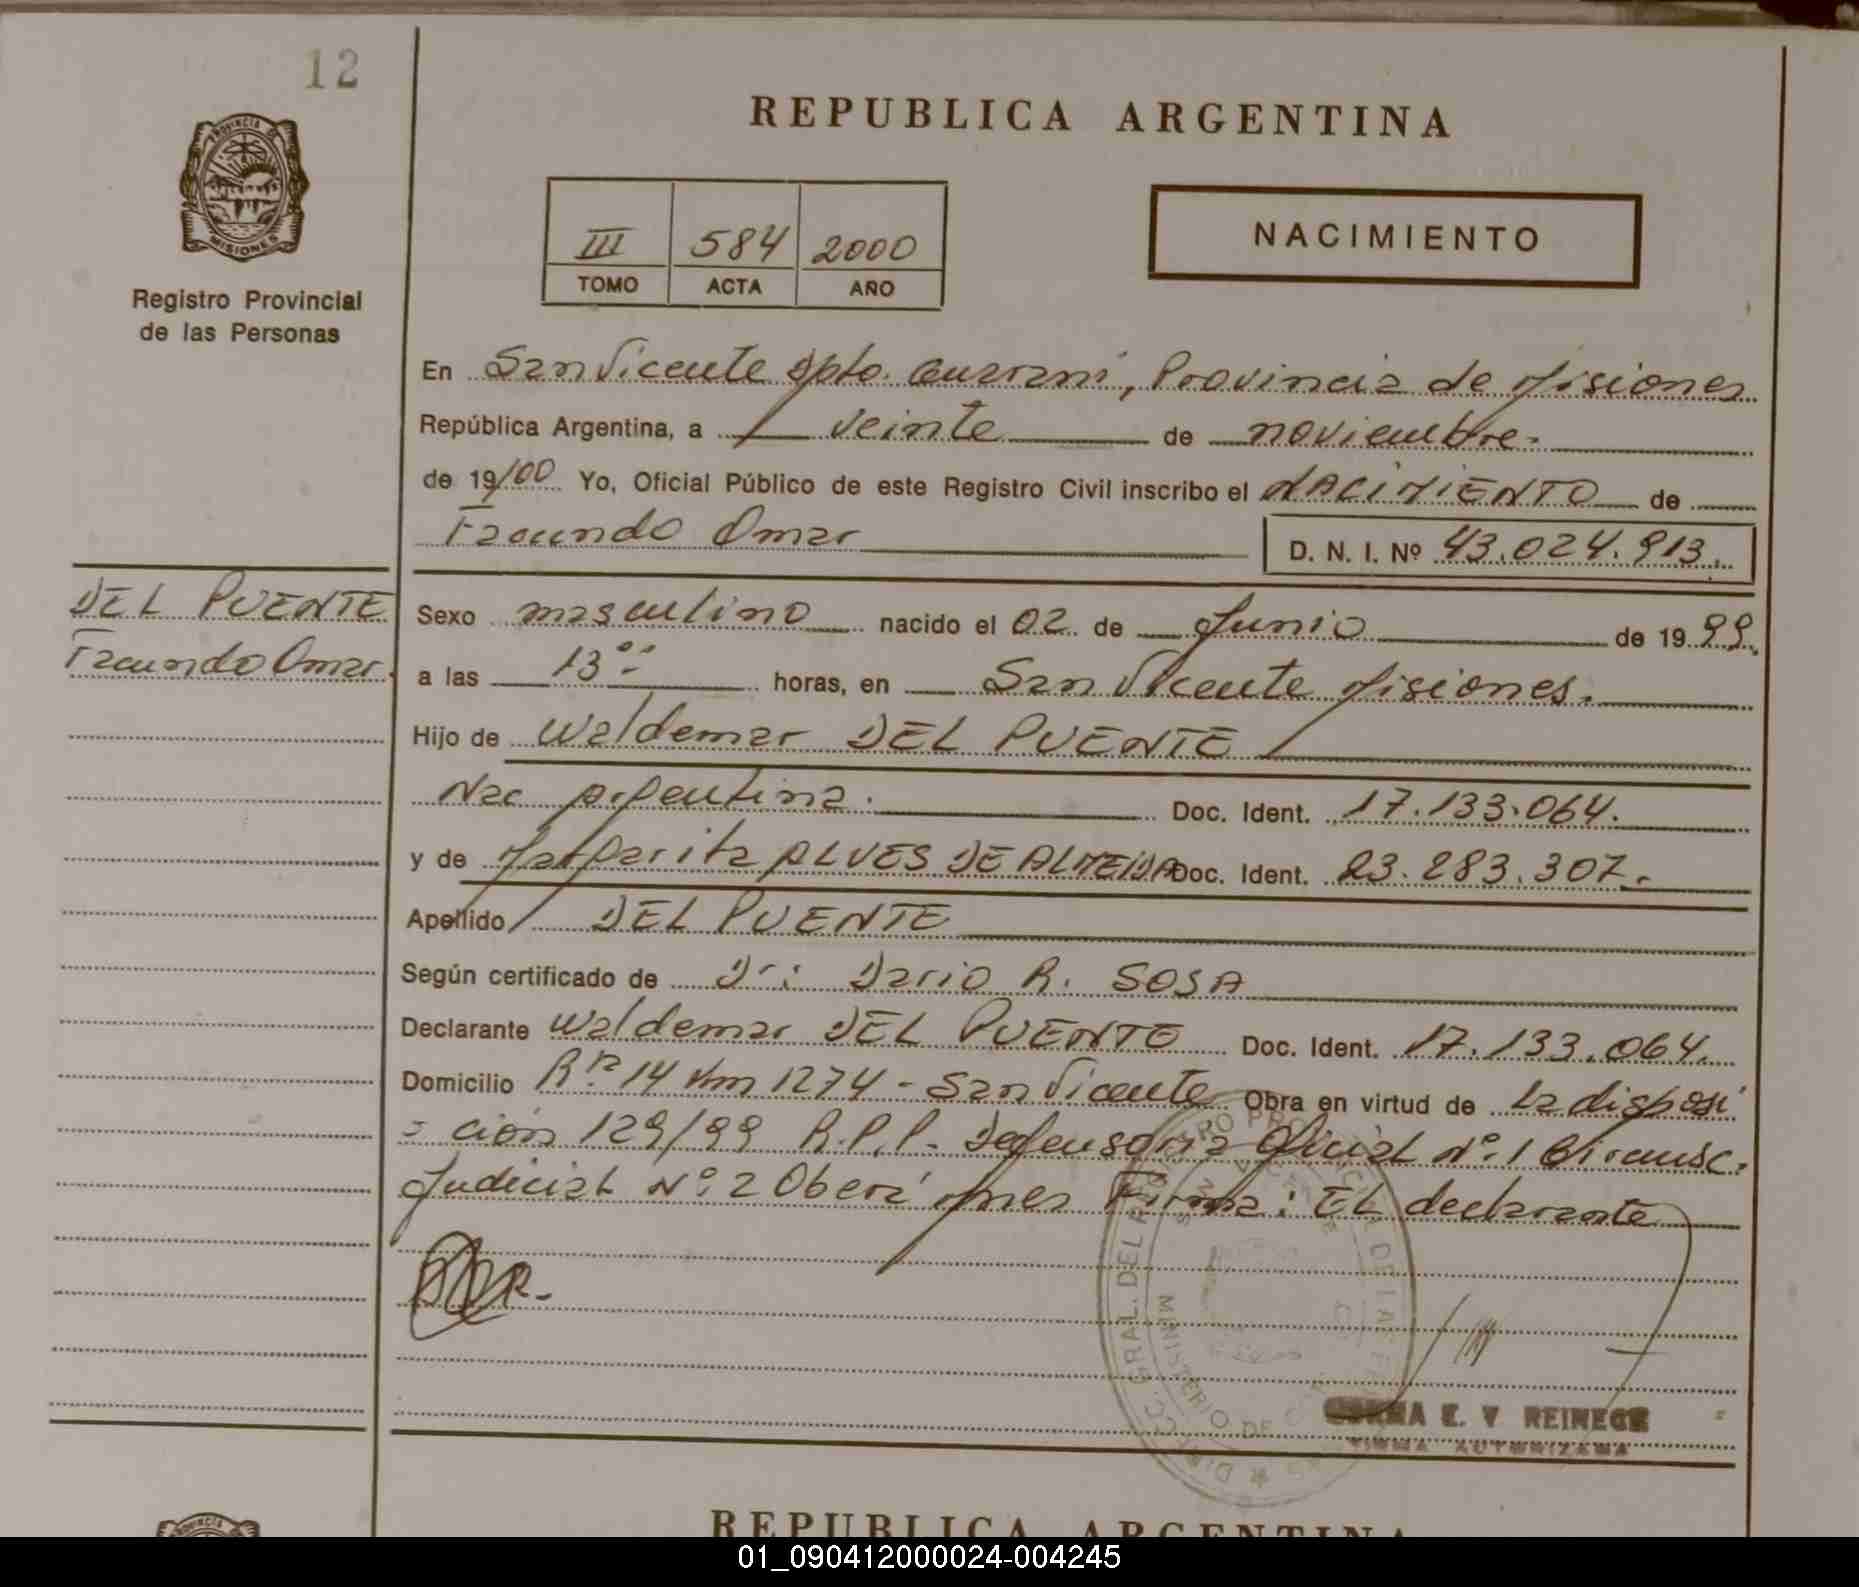 12
REPUBLICA ARGENTINA
PROVINCIA DE
MISIONES
III 584 2000
TOMO ACTA AÑO
NACIMIENTO
Registro Provincial
de las Personas
En San Vicente Dpto. Guaraní, Provincia de Misiones
República Argentina, a veinte de noviembre.
de 19/00 Yo, Oficial Público de este Registro Civil inscribo el NACIMIENTO de
Facundo Omar D. N. I. Nº 43.024.913.
DEL PUENTE
Facundo Omar.
Sexo masculino nacido el 02 de Junio de 1999.
a las 13°° horas, en San Vicente Misiones.
Hijo de Waldemar DEL PUENTE
Nac Argentina. Doc. Ident. 17.133.064.
y de Margarita ALVES DE ALMEIDA Doc. Ident. 23.283.307.
Apellido DEL PUENTE
Según certificado de Dr: Dario R. SOSA
Declarante Waldemar DEL PUENTE Doc. Ident. 17.133.064.
Domicilio Rta. 14 Km 1274 - San Vicente Obra en virtud de La disposi
= ción 129/99 R.P.P. Defensoria Oficial Nº.1 Circunsc.
Judicial Nº.2 Oberá Mnes Firma: El declarante
DIRECC. GRAL. DEL REGISTRO PROVINCIAL DE LAS PERSONAS
MINISTERIO DE
E. V REINECE
FIRMA AUTORIZADA
REPUBLICA ARGENTINA
PROVINCIA
01_090412000024-004245